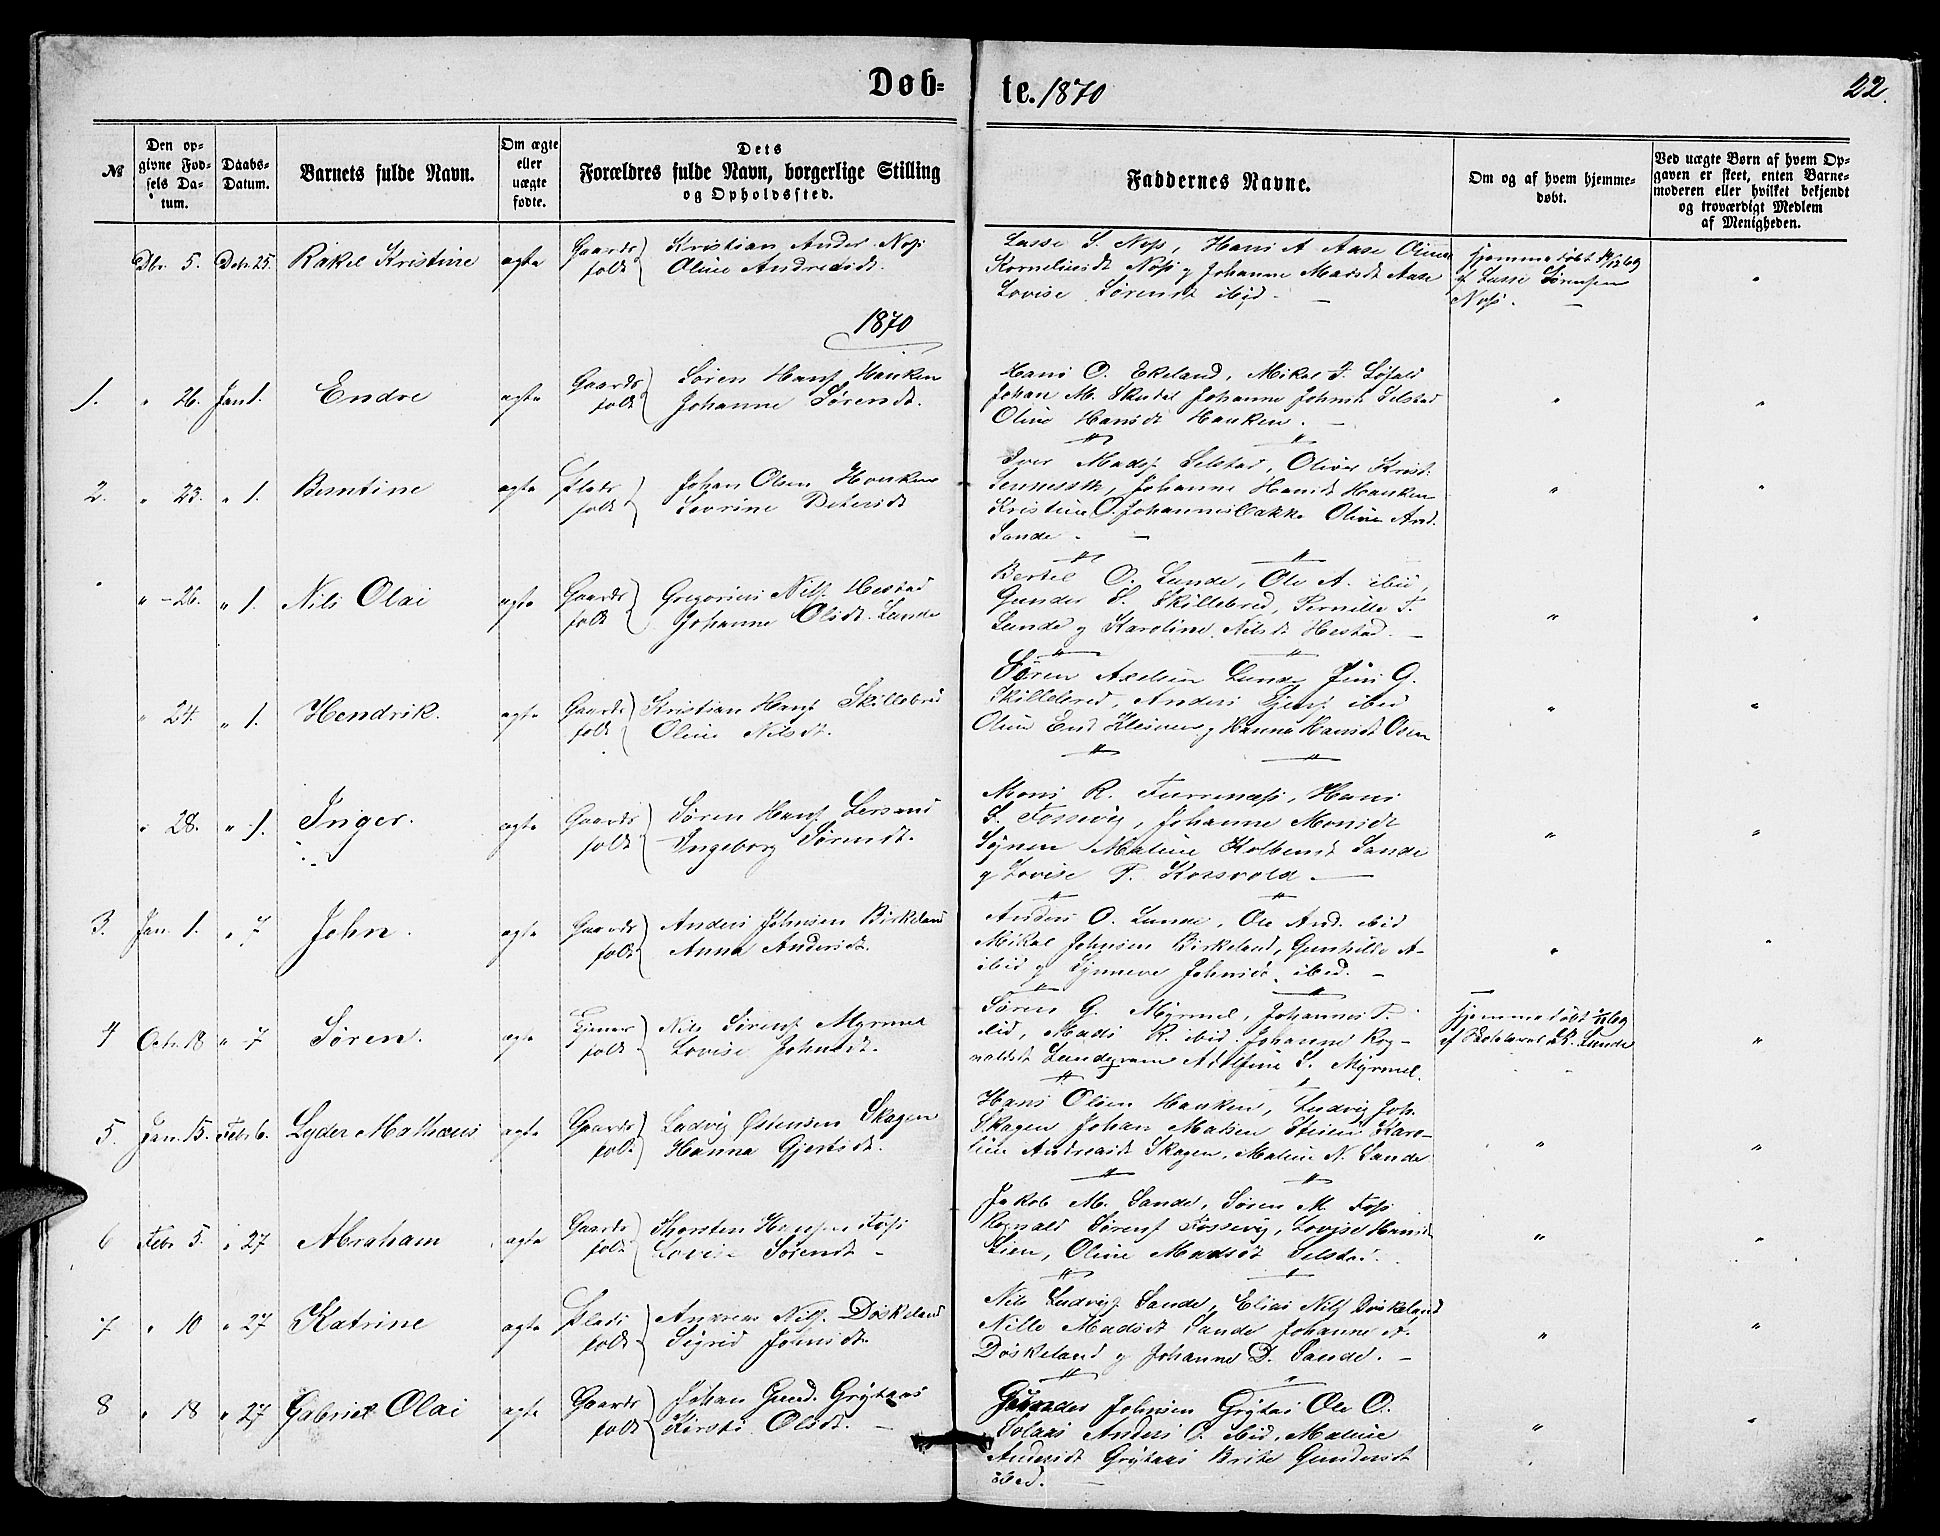 Døb=
te. 1870
22.
№
Den op-
givne Fød-
sels Da-
tum.
Daabs-
Datum.
Barnets fulde Navn.
Om ægte
eller
uægte
fødte.
Dets
Forældres fulde Navn, borgerlige Stilling
og Opholdssted.
Faddernes Navne.
Om og af hvem hjemme-
døbt.
Ved uægte Børn af hvem Op-
gaven er skeet, enten Barne-
moderen eller hvilket bekjendt
og troværdigt Medlem
af Menigheden.
Dbr. 5. Dcbr. 25. Rakel Kristine ægte Gaards folk
Kristian Ander. Nøs
Oline Andresdt.
Lasse S. Nøss, Hans A Aase
Korneliusdt Nøss og Johanne Madsdt Aase
Lovise Sørensdt ibid.
Hjemmedøbt
af Lasse Sørensen
Nøss.
1870
1. " 26. Jan 1. Endre ægte Gaards folk
Søren Hans. Hauken
Johanne Sørensdt.
Hans O. Ekeland, Mikal
Johan M. Johanne Johnsdt Selstad
Oline Hansdt Hauken.
2. " 23. " 1. Berntine ægte Plads folk
Johan Olsen Hauken
Severine Petersdt
Iver Mads. Selstad, Oliver Krist.
Johanne Hansdt Hauken
Kristine O. Johannesbakke Oline And.
Sande
" 26. " 1. Nils Olai ægte Gaards folk
Gregorius Nils. Hestad
Johanne Olsdt. Lunde
Bertel O. Lunde, Ole A. ibid,
Gunder S. Skillebred, Pernille T.
Lunde og Karoline Nilsdt Hestad.
" 24. " 1. Hendrik. ægte Gaards folk
Kristian Hans. Skillebred
Oline Nilsdt.
Søren Axelsen Lunde Jens G.
Skillebred, Anders ibid
Oline og Hanna Hansdt Osen
" 28. " 1. Inger. ægte Gaards folk
Søren Hans.
Ingeborg Sørensdt.
Mons R. Furrenæss, Hans
S. Fossevig, Johanne Monsdt
Maline Kolbensdt Sande
og Lovise T. Korsvold
3. Jan. 1. " 7 John. ægte Gaards folk
Anders Johnsen Birkeland
Anna Andersdt.
Anders O. Lunde, Ole And. ibid
Mikal Johnsen Birkeland, Gunhilde A-
ibid og Synneve Johnsdt. ibid.
4 Octr. 18 " 7 Søren. ægte folk
Nils Sørens. Myrmel
Lovise Johnsdt.
Søren G. Myrmel, Johannes T.
ibid, Mads R. ibid. Johanne Rog-
naldsdt Adolfine S. Myrmel.
Hjemmedøbt
Lunde
5. Jan. 15. Febr 6. Lyder Mathæus ægte Gaards folk
Ludvig Østensen Skagen
Hanna Gjertsdt.
Hans Olsen Hauken, Ludvig Joh.
Skagen Johan Matsen Steien Karo-
line Andreasdt Skagen, Maline N. Sande
6 Febr 5. " 27 Abraham ægte Gaards folk
Thorsten Hansen Foss
Lovise Sørensdt
Jakob M. Sande, Søren M. Foss
Rognald Sørens. Fossevig, Lovise Hansdt
Lien, Oline Madsdt Selstad.
7 " 10 " 27 Katrine ægte Plads folk
Andreas Nils. Døskeland
Sigrid Jonnsdt.
Nils Ludvigs. Sande, Elias Nils. Døskeland
Nille Madsdt Sande Johanne A.
Døskeland og Johanne D. Sande.
8 " 18 " 27 Gabriel Olai ægte Gaards folk
Johan Gund. Grytaas
Kirsti Olsdt.
Gunder Johnsen Grytaas Ole O.
Solaas Anders O. ibid, Maline
Andersdt Grytaas Brite Gundersdt
ibid.